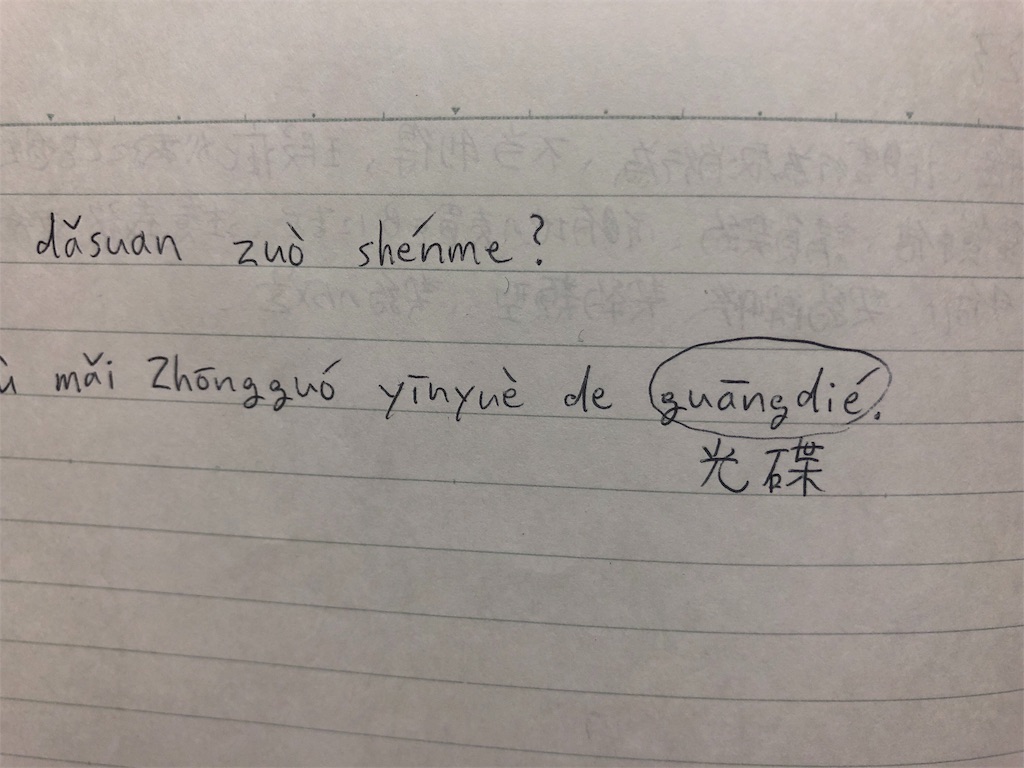 dǎsuan zuò shénme?
mǎi Zhōngguó yīnyuè de guāngdié.
光碟